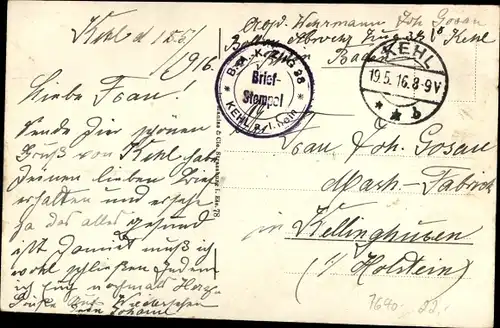 Kehl d 18/5
1916.
Liebe Frau!
Sende Dir schönen
Gruß von Kehl habe
Deinen lieben Brief
erhalten und ersehe
ja das alles gesund
ist Damit muß ich
wohl schließen Indem
ich Euch nochmals Herzl
Grüße Auf Wiedersehen
Dein Johann
Absd. Wehrmann Joh Gosau
Kehl
Baden
No 26
Brief-
Stempel
KEHL
KEHL
19.5.16.8-9V
* * b
Frau Joh. Gosau
Mach-Fabrik
in Kellinghusen
(i/Holstein)